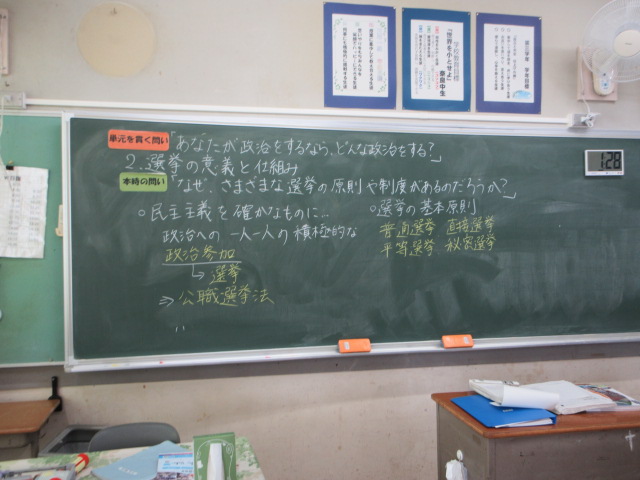 学校教育目標
『世界を小とせよ』
秦泉中生
第三学年 学年目標
単元を貫く問い「あなたが政治をするなら、どんな政治をする?」
2.選挙の意義と仕組み
本時の問い「なぜ、さまざまな選挙の原則や制度があるのだろうか?」
○民主主義を確かなものに…
政治への一人一人の積極的な
政治参加
↳選挙
⇒公職選挙法
○選挙の基本原則
普通選挙 直接選挙
平等選挙 秘密選挙
1:28